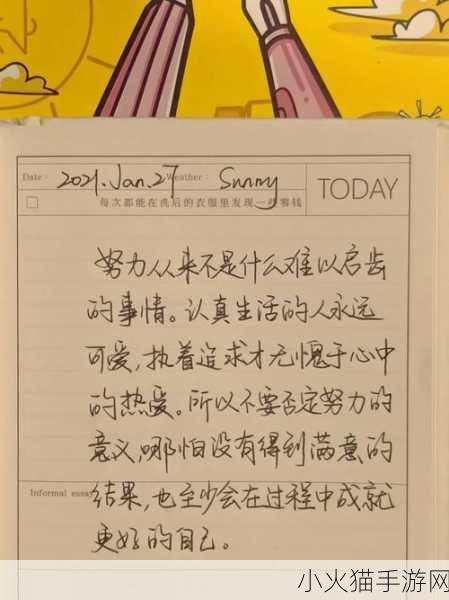 Date: 2021.Jan.27 Weather: Sunny
TODAY
每次都能在洗后的衣服里发现一些零钱
努力从来不是什么难以启齿
的事情。认真生活的人永远
可爱,执着追求才无愧于心中
的热爱。所以不要否定努力的
意义,哪怕没有得到满意的
Informal essay
结果,也至少会在过程中成就
更好的自己。
小火猫手游网